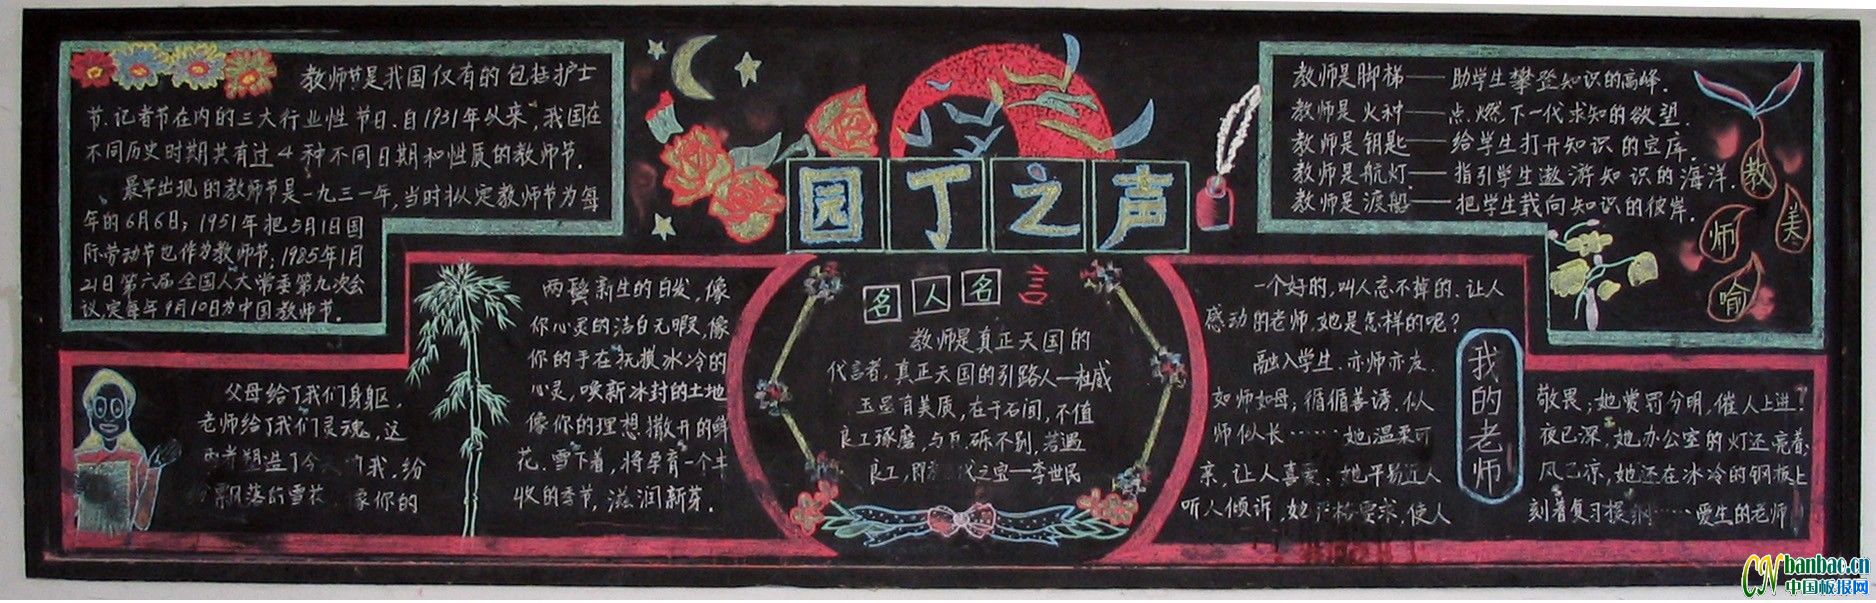 教师节是我国仅有的包括护士
节、记者节在内的三大行业性节日。自1931年以来，我国在
不同历史时期共有过4种不同日期和性质的教师节。
最早出现的教师节是一九三一年，当时拟定教师节为每
年的6月6日；1951年把5月1日国
际劳动节也作为教师节；1985年1月
21日第六届全国人大常委第九次会
议，定每年9月10日为中国教师节。
园丁之声
教师是脚梯——助学生攀登知识的高峰.
教师是火种——点燃下一代求知的欲望.
教师是钥匙——给学生打开知识的宝库.
教师是航灯——指引学生遨游知识的海洋.
教师是渡船——把学生载向知识的彼岸.
教
师
美
喻
父母给了我们身躯，
老师给了我们灵魂，这
塑造了今 我，纷
飘落的雪花， 像你的
两鬓新生的白发，像
你心灵的洁白无暇，像
你的手在抚摸冰冷的
心灵，唤新冰封的土地
像你的理想撒开的鲜
花。雪下着，将孕育一个丰
收的季节，滋润新芽。
名人名言
教师是真正天国的
代言者，真正天国的引路人—杜威
玉虽有美质，在于石间，不值
良工琢磨，与瓦砾不别，若遇
良工，即 代之宝—李世民
一个好的，叫人忘不掉的、让人
感动的老师，她是怎样的呢？
融入学生，亦师亦友.
如师如母；循循善诱.似
师似长……她温柔可
亲，让人喜爱；她平易近人
听人倾诉，她严格要求，使人
我的老师
敬畏；她赏罚分明，催人上进.
夜已深，她办公室的灯还亮着；
风已凉，她还在冰冷的钢板上
刻着复习提纲……爱生的老师
CN banbao.cn
中国板报网